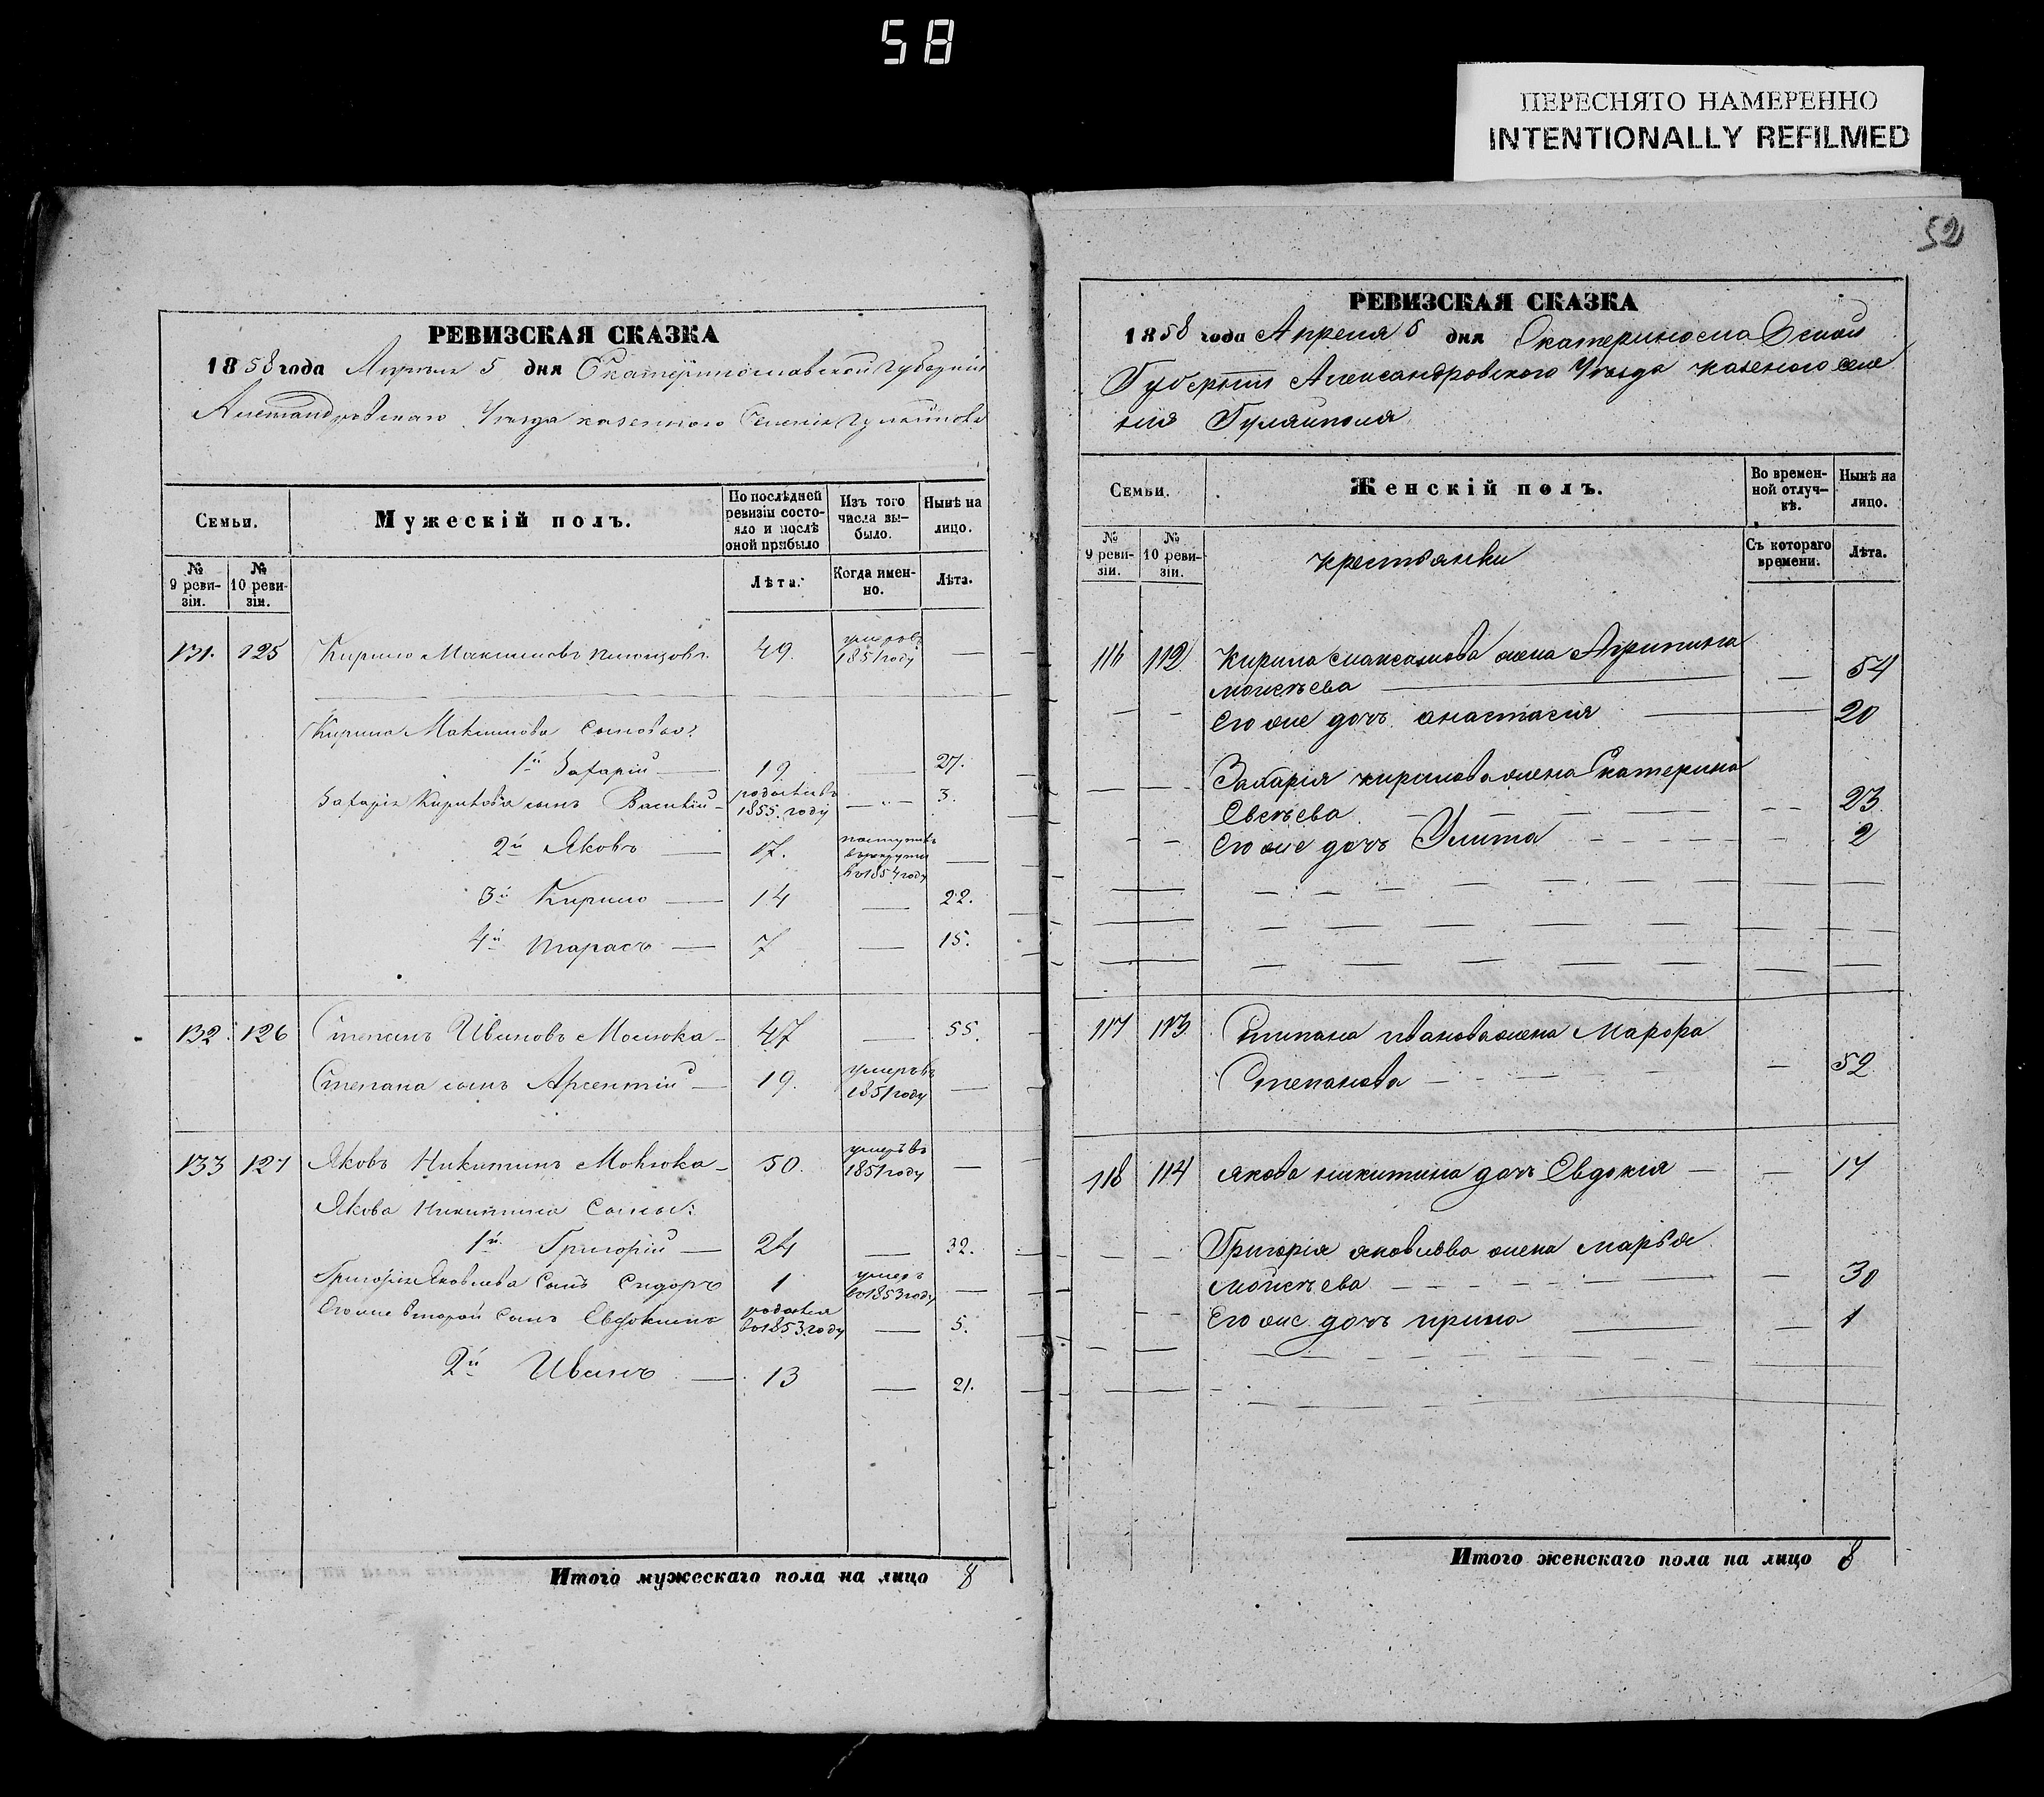 58
ПЕРЕСНЯТО НАМЕРЕННО
INTENTIONALLY REFILMED
52
РЕВИЗСКАЯ СКАЗКА
1858 года Апреля 5 дня Екатеринославской Губернии
Александровскаго Уезда казенного Селения Гуляйполя
Семьи.
Мужескій полъ.
По послѣдней ревизіи состояло и послѣ оной прибыло
Изъ того числа выбыло.
Нынѣ на лицо.
№ 9 ревизіи.
№ 10 ревизіи.
Лѣта.
Когда именно.
Лѣта.
131. 125 Кирило Максимовъ 49. умеръ въ 1851 году —
Кирила Максимова сыновья:
1й Захарій — 19. — 27.
Захарія Кирилова сынъ Василий — родился въ 1855. году — 3.
2й Яковъ — 17. поступилъ в рекруты в 1854 году —
3й Кирило — 14 — 22.
4й Тарасъ — 7 — 15.
132. 126 Степанъ Ивановъ — 47 — 55.
Степана сынъ Арсентий — 19. умеръ въ 1851 году —
133 127 Яковъ Никитинъ — 50. умеръ въ 1851 году —
Якова Никитина Сыны:
1й. Григорій — 24 — 32.
Григорія Яковлева Сынъ Сидоръ 1 умеръ во 1853 году —
Его же второй сынъ Евдокимъ родился во 1853. году — 5.
2й Иванъ — 13 — 21.
Итого мужескаго пола на лицо 8
РЕВИЗСКАЯ СКАЗКА
1858 года Апреля 5 дня Екатеринославской
Губернии Александровского Уезда казеного селе
ния Гуляйполя
Семьи.
Женскій полъ.
Во временной отлучкѣ.
Нынѣ на лицо.
№ 9 ревизіи.
№ 10 ревизіи.
крестьянки
Съ котораго времени.
Лѣта.
116 112 Кирила Максимова жена Агрипина
Моисѣева — — 54
Его же дочь Анастасия — 20
Захария Кирилова жена Екатерина
Евсѣева — 23
Его же дочь Улита — 2
117 113 Степана Иванова жена
Степанова — — 52
118 114 Якова Никитина дочь Евдокия — — 17
Григория Яковлева жена Марья
Моисѣева — — 30
Его же дочь Ирина — — 1
Итого женскаго пола на лицо 8